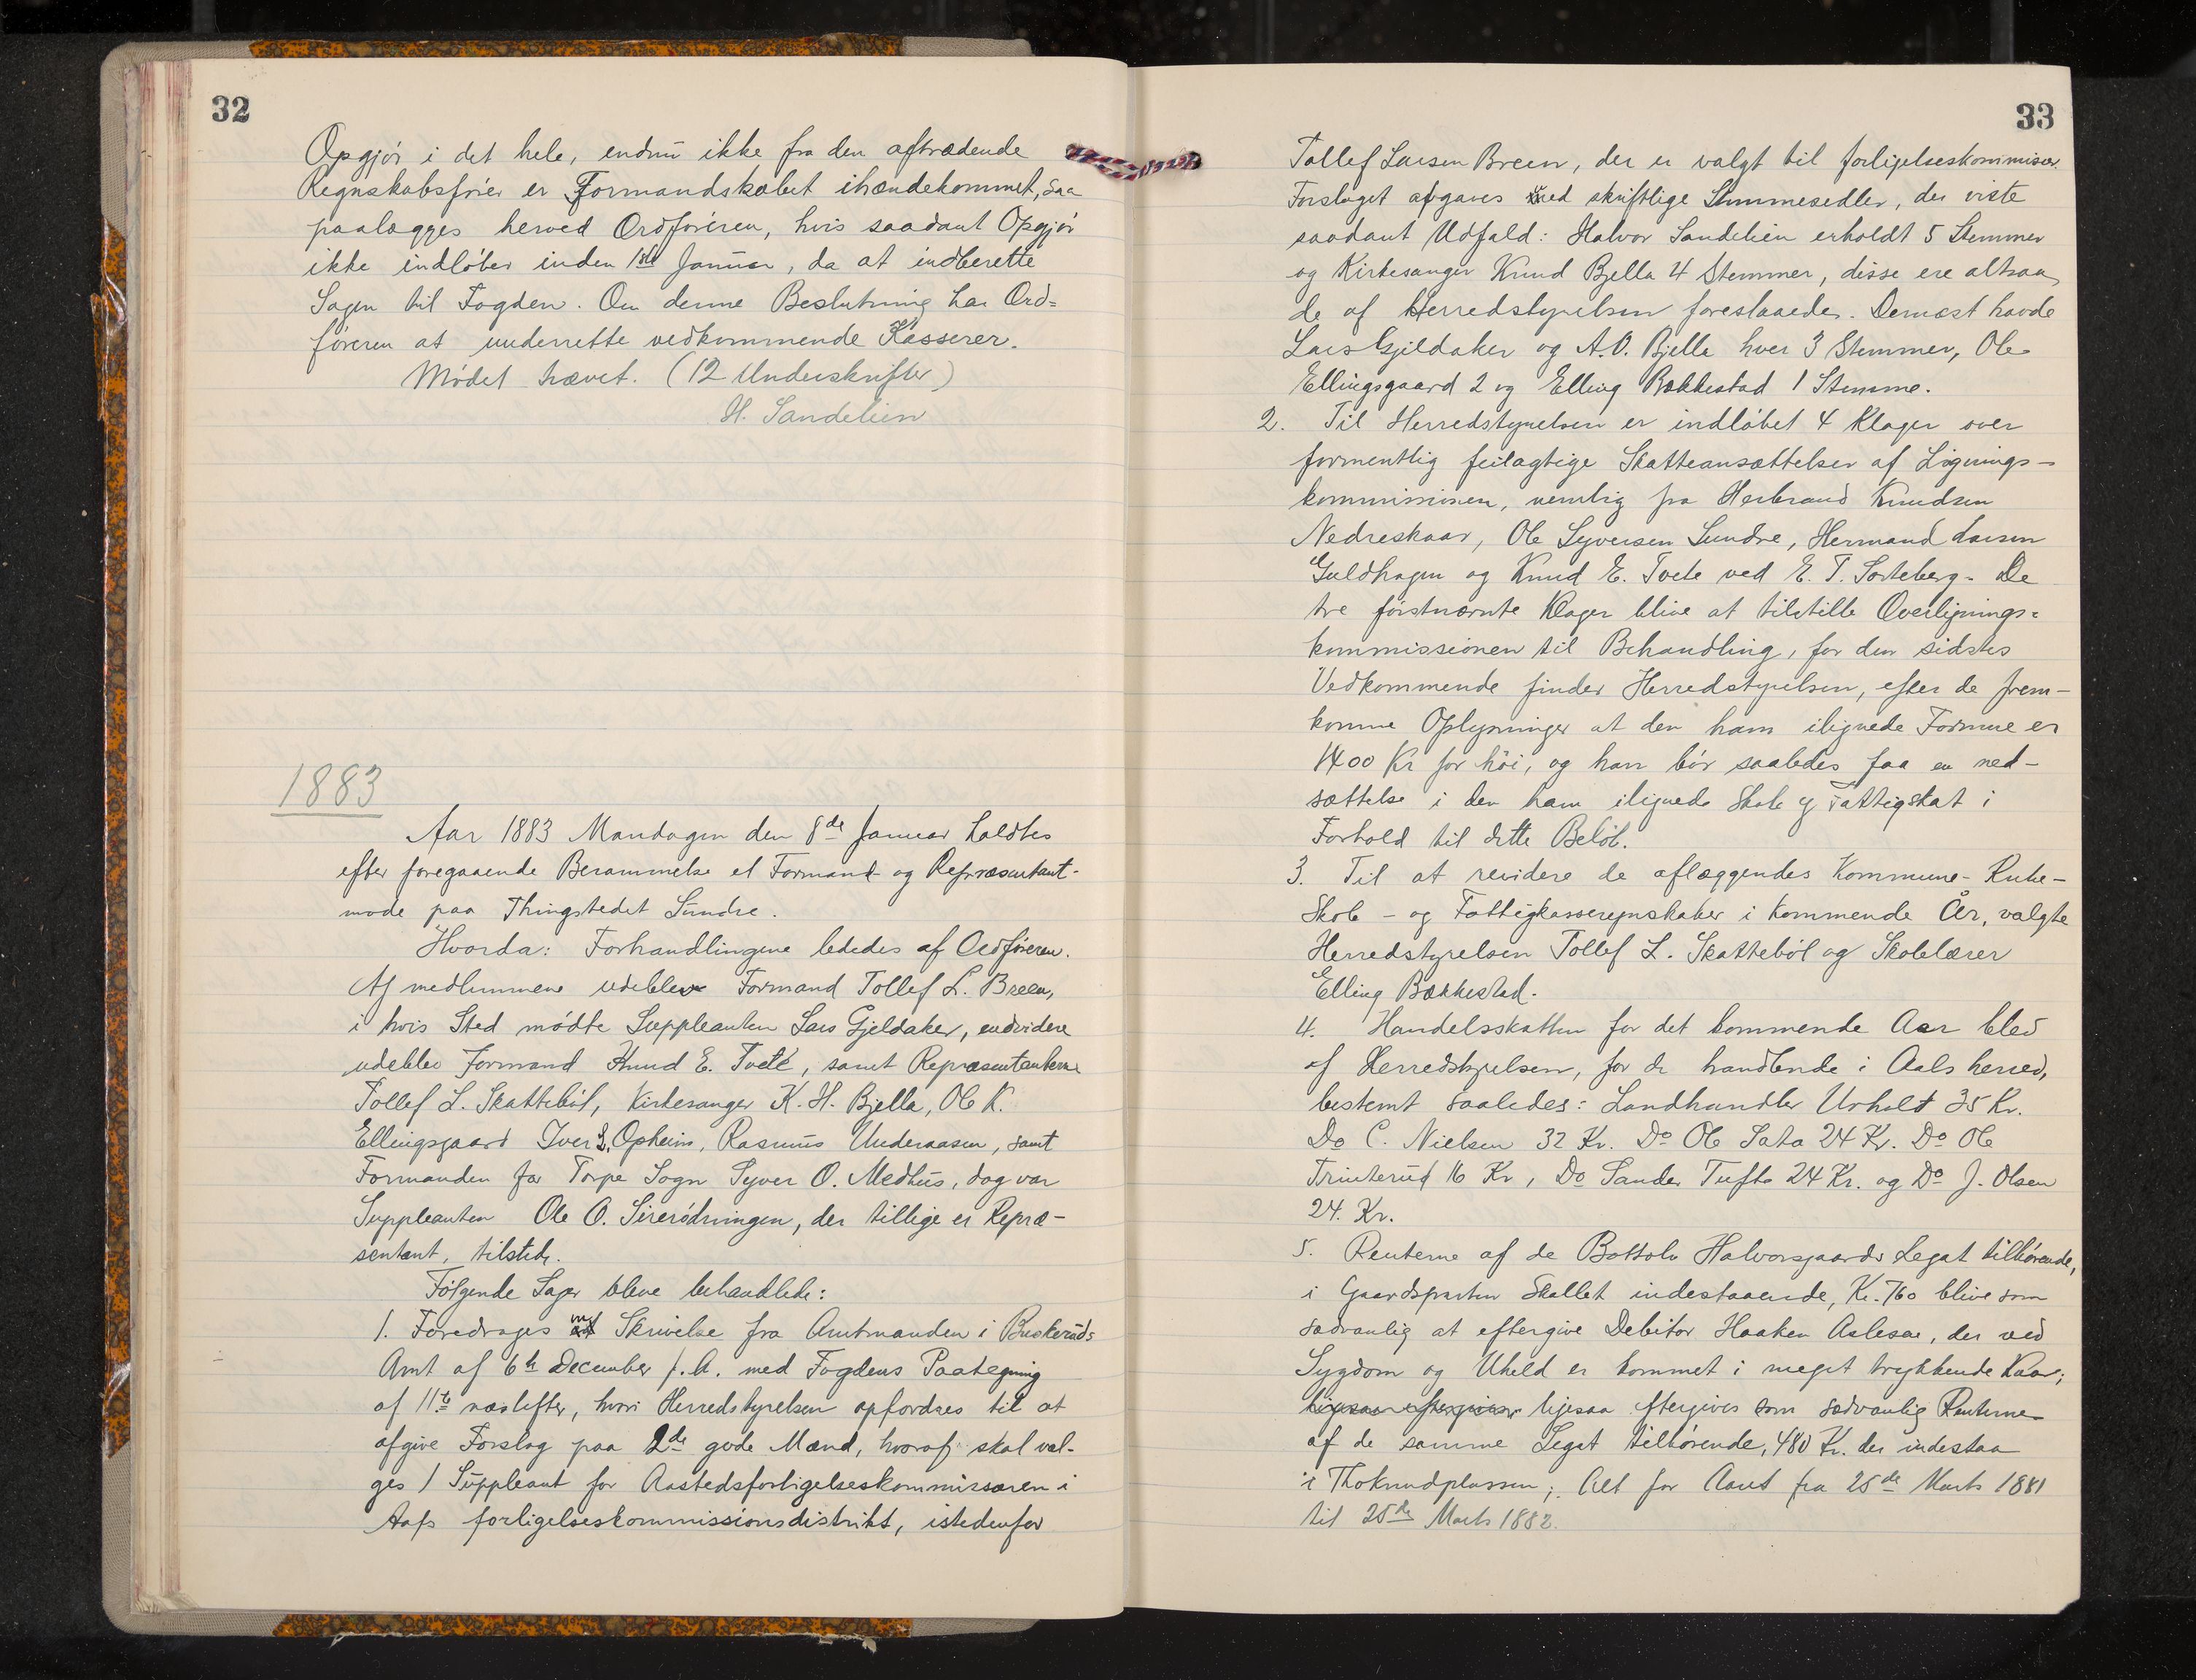 32
Opgjør i det hele, endnu ikke fra den aftrædende
Regnskabsfører er Formandskabet ihændekommet, saa
paalægges herved Ordføreren, hvis saadant Opgjør
ikke indløber inden 1ste Januar, da at indberette
Sagen til Fogden. Om denne Beslutning har Ord=
føreren at underrette vedkommende Kasserer.
Mødet hævet. (12 Underskrifter)
H. Sandelien
1883
Aar 1883 Mandagen den 8de Januar holdtes
efter foregaaende Berammelse et Formand og Repræsentant-
møde paa Thingstedet Sundre.
Hvorda: Forhandlingene lededes af Ordføreren.
Af medlemmene udeblev Formand Tollef L. Breen,
i hvis Sted mødte Suppleanten Lars Gjeldaker, endvidere
udeblev Formand Knud E. Tvete, samt Repræsentanterne
Tollef L. Skattebøl, Kirkesanger K. H. Bjella, Ole K.
Ellingsgaard Iver S. Opheim, Rasmus Underaasen, samt
Formanden for Torpe Sogn Syver O. Medhus, dog var
Suppleanten Ole O. Sirerødningen, der tillige er Repræ-
sentant, tilstede.
Følgende Sager bleve behandlede:
1. Foredroges Skrivelse fra Amtmanden i Buskeruds
Amt af 6te December f. A. med Fogdens Paategning
af 11te næstefter, hvori Herredstyrelsen opfordres til at
afgive Forslag paa 2de gode Mænd, hvoraf skal væl-
ges 1 Suppleant for Aastedsforligelseskommissæren i
Aals forligelseskommissionsdistrikt, istedenfor
33
Tollef Larsen Breen, der er valgt til forligelseskommisær.
Forslaget afgaves ved skriftlige Stemmesedler, der viste
saadant Udfald: Halvor Sandelien erholdt 5 Stemmer
og Kirkesanger Knud Bjella 4 Stemmer, disse ere altsaa
de af Herredstyrelsen foreslaaede. Dernæst havde
Lars Gjeldaker og A. O. Bjella hver 3 Stemmer, Ole
Ellingsgaard 2 og Elling Bækkestad 1 Stemme.
2. Til Herredstyrelsen er indløbet 4 Klager over
formentlig feilagtige Skatteansættelser af Lignings-
kommissionen, nemlig fra Herbrand Knudsen
Nedreskaar, Ole Syversen Sundre, Hermand Larsen
Guldhagen og Knud E. Tvete ved E. T. Sorteberg. De
tre førstnævnte Klager blive at tilstille Overlignings=
kommissionen til Behandling, for den sidstes
Vedkommende finder Herredstyrelsen, efter de frem-
komne Oplysninger at den ham ilignede Formue er
1400 Kr for høi, og han bør saaledes faa en ned-
sættelse i den ham ilignede Skole og Fattigskat i
Forhold til dette Beløb.
3. Til at revidere de aflæggendes Kommune-
Skole - og Fattigkasseregnskaber i kommende År, valgte
Herredstyrelsen Tollef L. Skattebøl og Skolelærer
Elling Bækkestad.
4. Handelsskatten for det kommende Aar blev
af Herredstyrelsen, for de handlende i Aals herred,
bestemt saaledes: Landhandler Urholt 35 Kr.
Do C. Nielsen 32 Kr. Do Ole Sata 24 Kr. Do Ole
Trinterud 16 Kr, Do Sander Tufto 24 Kr. og Do J. Olsen
24. Kr.
5. Renterne af de Bottolv Halvorsgaards Legat tilhørende,
i Gaardsparten Skallet indestaaende, Kr. 760 blive som
sædvanlig at eftergive Debitor Haaken Aslesen, der ved
Sygdom og Uheld er kommet i meget trykkende Kaar;
ligesaa eftergives ligesaa eftergives som sædvanlig Renterne
af de samme Legat tilhørende, 480 Kr. der indestaa
i Thoknudplassen; Alt for Aaret fra 25de Marts 1881
til 25de Marts 1882.